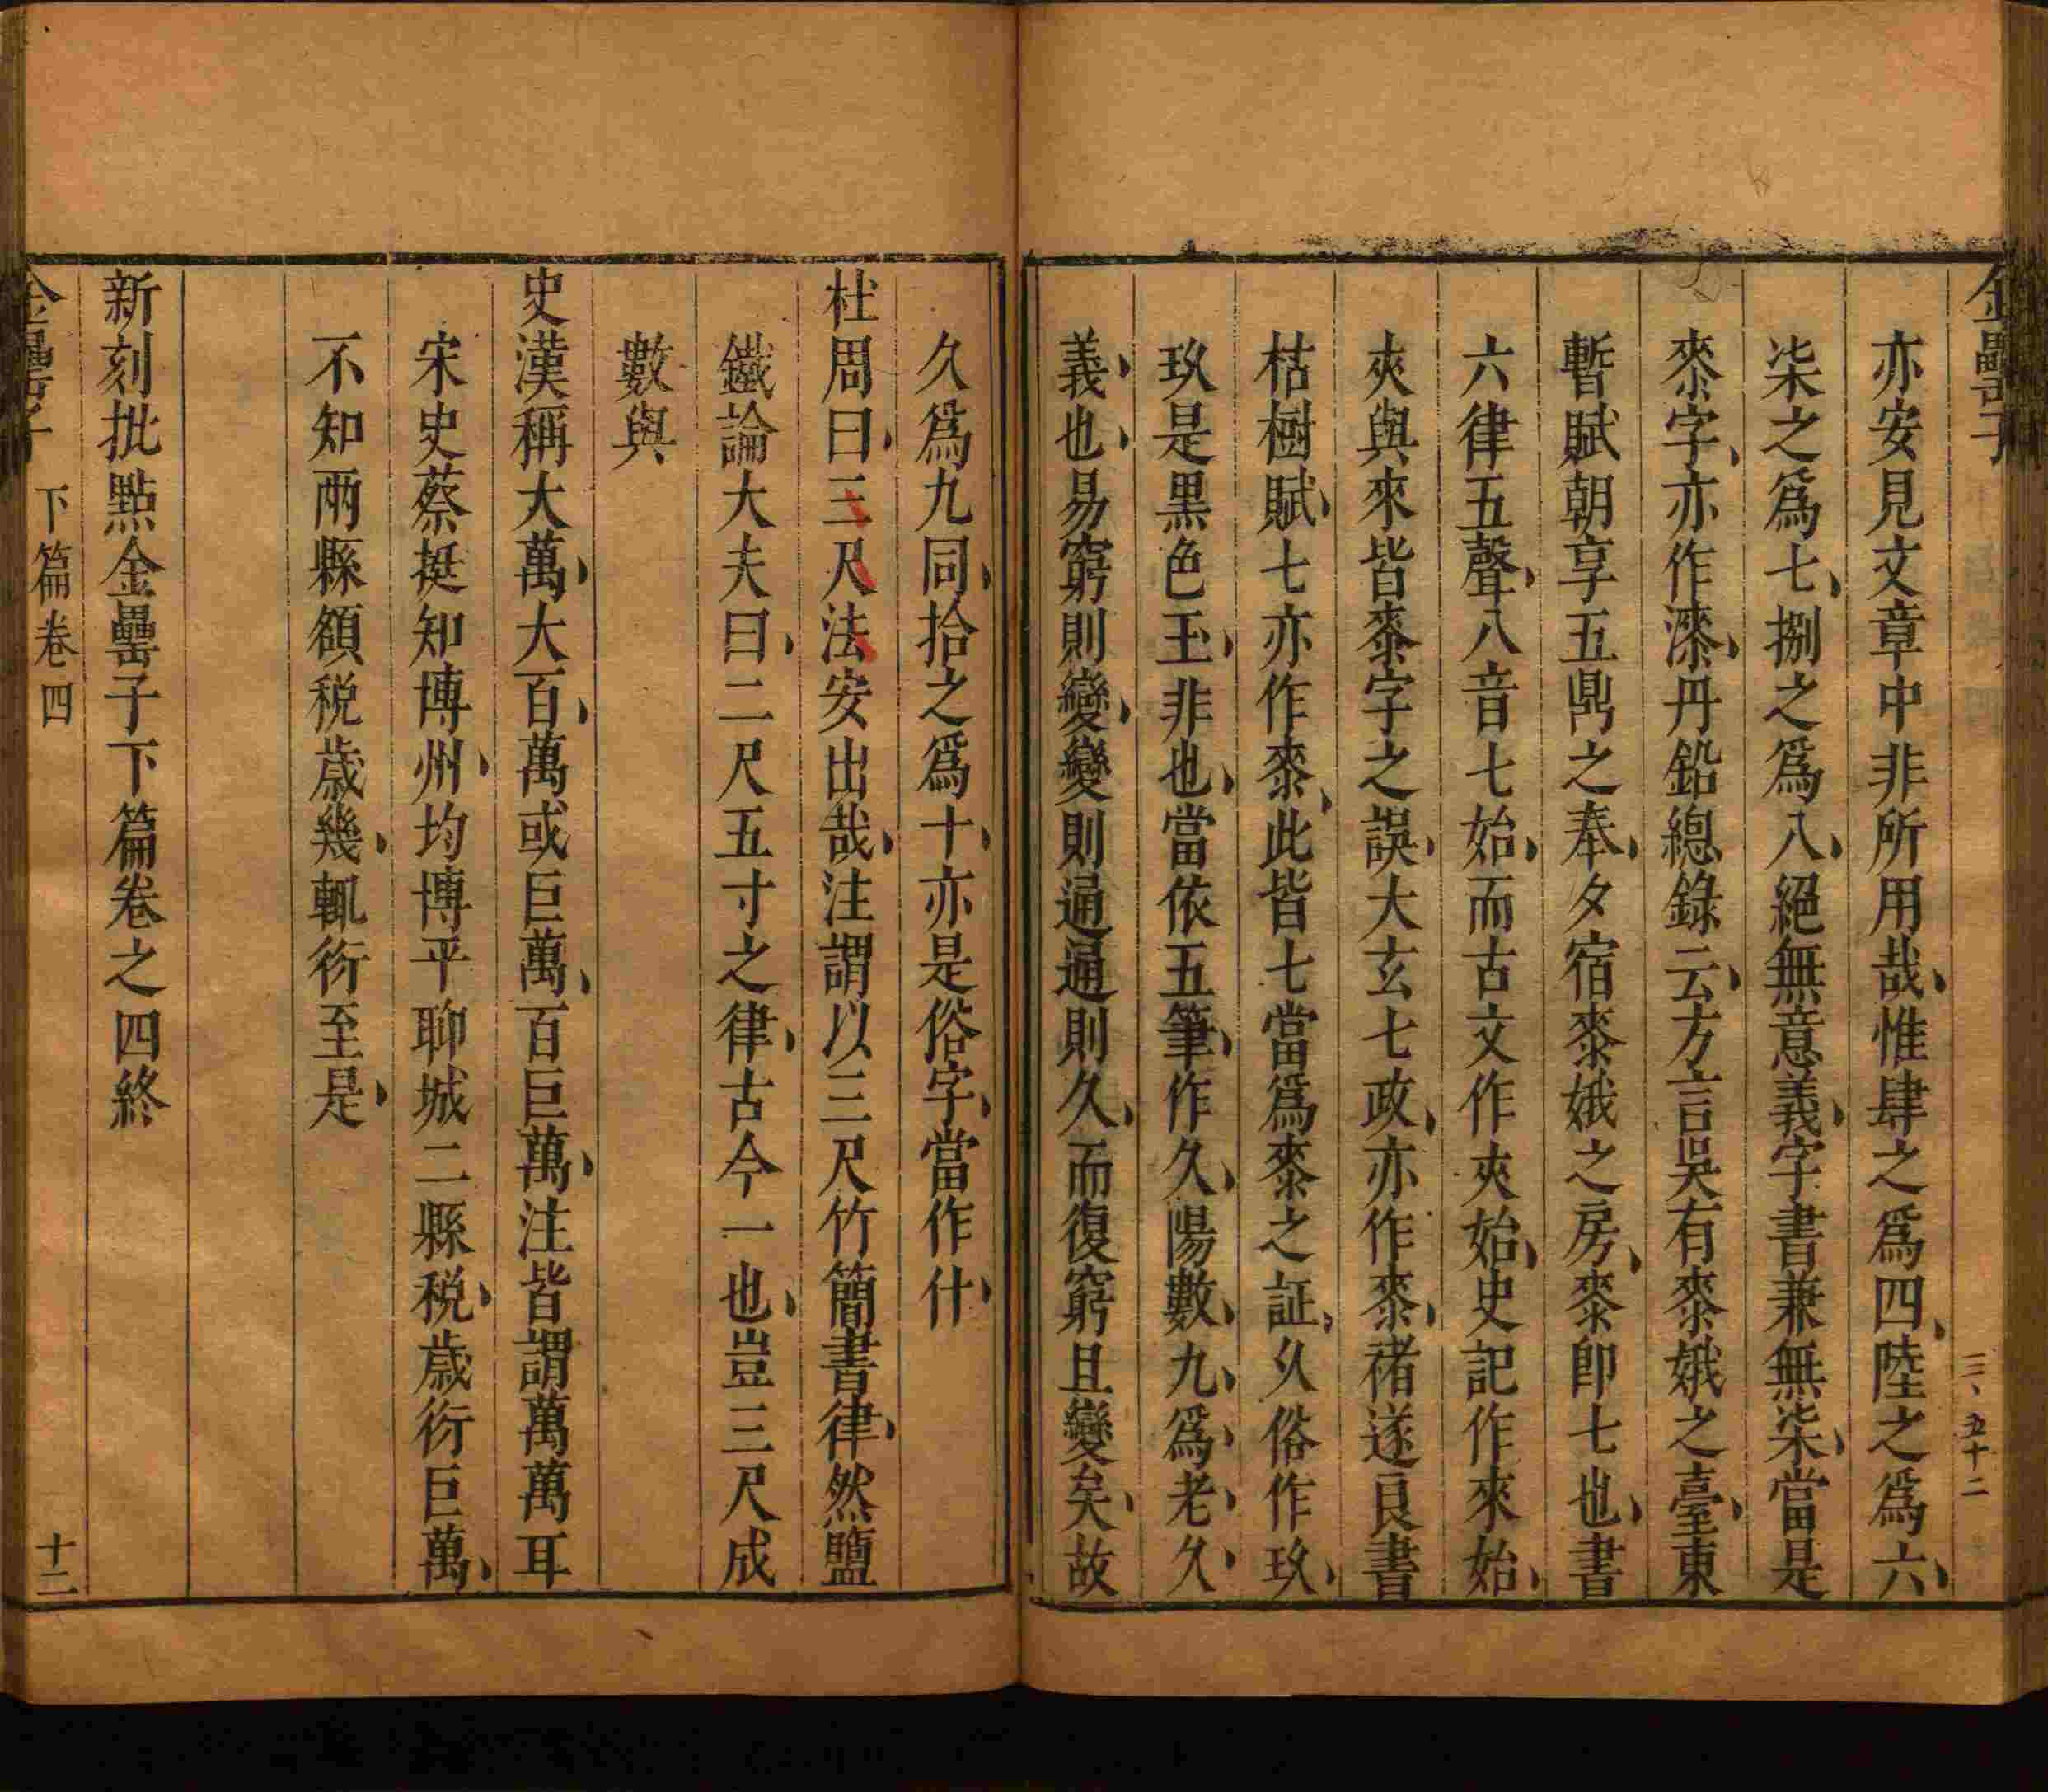 金罍子
三、五十二
亦安見文章中非所用哉惟肆之爲四陸之爲六
柒之爲七捌之爲八絕無意義字書兼無柒當是
桼字亦作漆丹鉛總錄云方言吳有桼娥之臺東
暫賦朝享五鼎之奉夕宿桼娥之房桼即七也書
六律五聲八音七始而古文作夾始史記作來始
夾與來皆桼字之誤大玄七政亦作桼禇遂良書
枯樹賦七亦作桼此皆七當爲桼之証久俗作玖
玖是黑色玉非也當依五筆作久陽數九爲老久
義也易窮則變變則通通則久而復窮且變矣故
久爲九同拾之爲十亦是俗字當作什
杜周曰三尺法安出哉注謂以三尺竹簡書律然鹽
鐵論大夫曰二尺五寸之律古今一也豈三尺成
數與
史漢稱大萬大百萬或巨萬百巨萬注皆謂萬萬耳
宋史蔡挺知博州均博平聊城二縣税歲衍巨萬
不知兩縣額税歲幾輒衍至是
新刻批點金罍子下篇卷之四終
金罍子 下篇卷四 十二